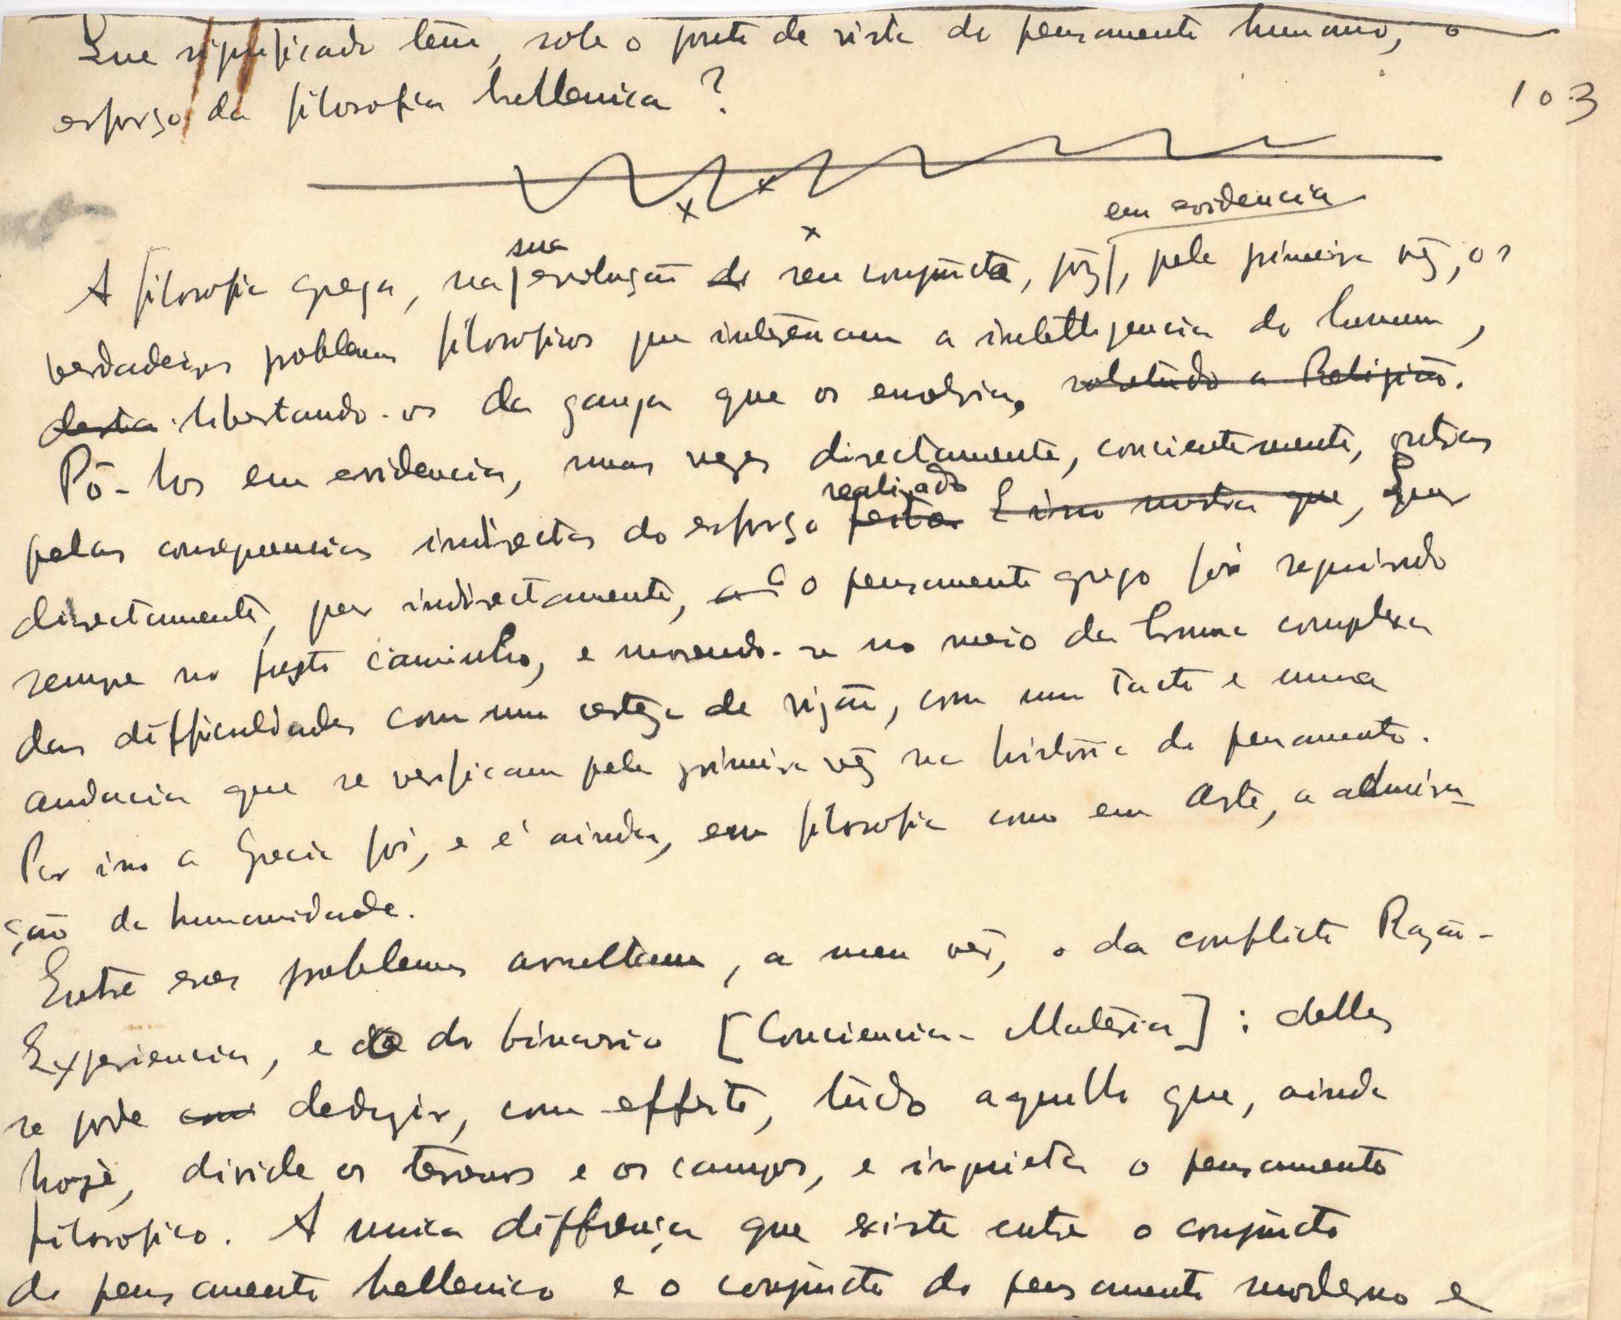 Que significado tem, sob o ponto de vista do pensamento humano, o
esforço da filosofia hellenica?
103
em evidencia
sua
A filosofia grega, na evolução do seu conjuncto, pôz, pela primeira vêz, os
verdadeiros problemas filosoficos que interessam a intelligencia do homem,
desta libertando-os da ganga que os envolvia, sobretudo a Religião.
Pô-los em evidencia, umas vezes directamente, concientemente, outras
realizado
pelas consequencias indirectas do esforço feito. E isso mostra que, Quer
directamente, quer indirectamente, o pensamento grego foi seguindo
sempre no justo caminho, e movendo-se no meio da trama complexa
das difficuldades com uma certeza de visão, com um tacto e uma
audacia que se verificam pela primeira vêz na história do pensamento.
Por isso a Grecia foi, e é ainda, em filosofia como em Arte, a admira-
ção da humanidade.
Entre esses problemas avultam, a meu vêr, o do conflicto Razão-
Experiencia, e o do binario [Conciencia-Matéria]: delles
se póde deduzir, com effeito, tudo aquillo que, ainda
hoje, divide os terrenos e os campos, e inquieta o pensamento
filosofico. A unica differença que existe entre o conjuncto
do pensamento hellenico e o conjuncto do pensamento moderno e